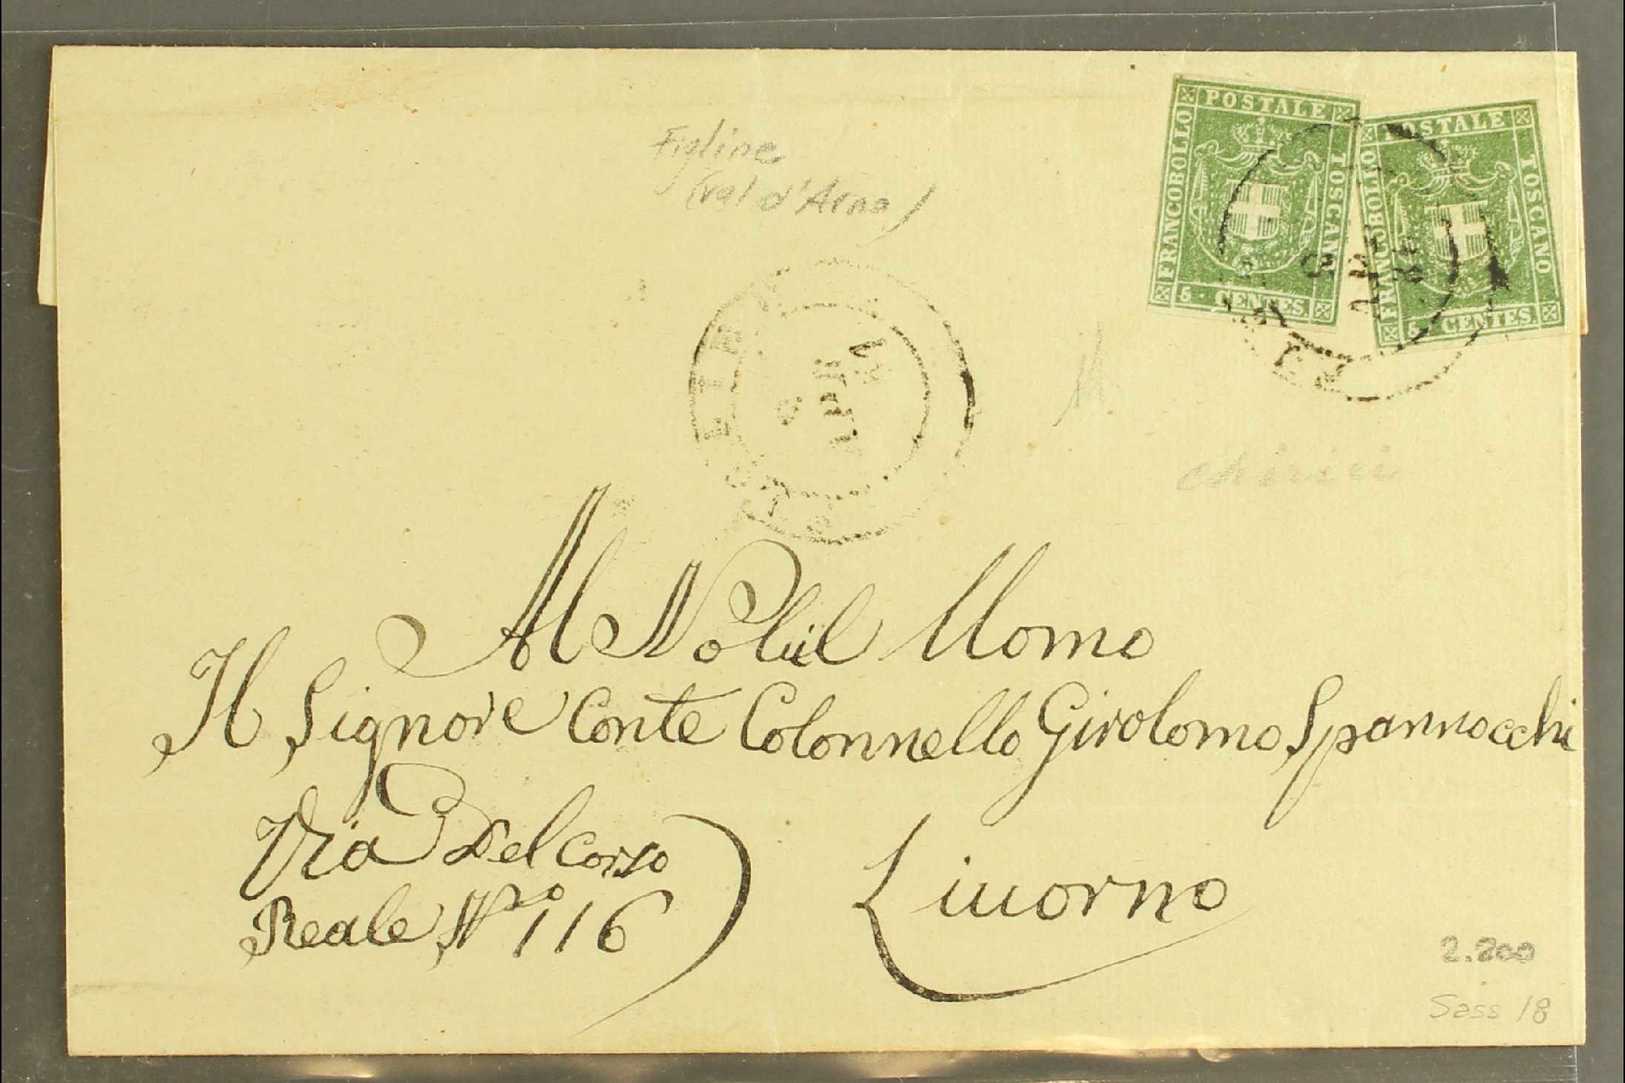 Figline
(val d'Arno)
POSTALE
FRANCOBOLLO
TOSCANO
5 · CENTES.
POSTALE
FRANCOBOLLO
TOSCANO
5 · CENTES.
Al Nobil Uomo
Il Signore Conte Colonnello Girolomo Spannocchi
Via Del Corso
Reale Nro 116
Livorno
2.200
Sass 18